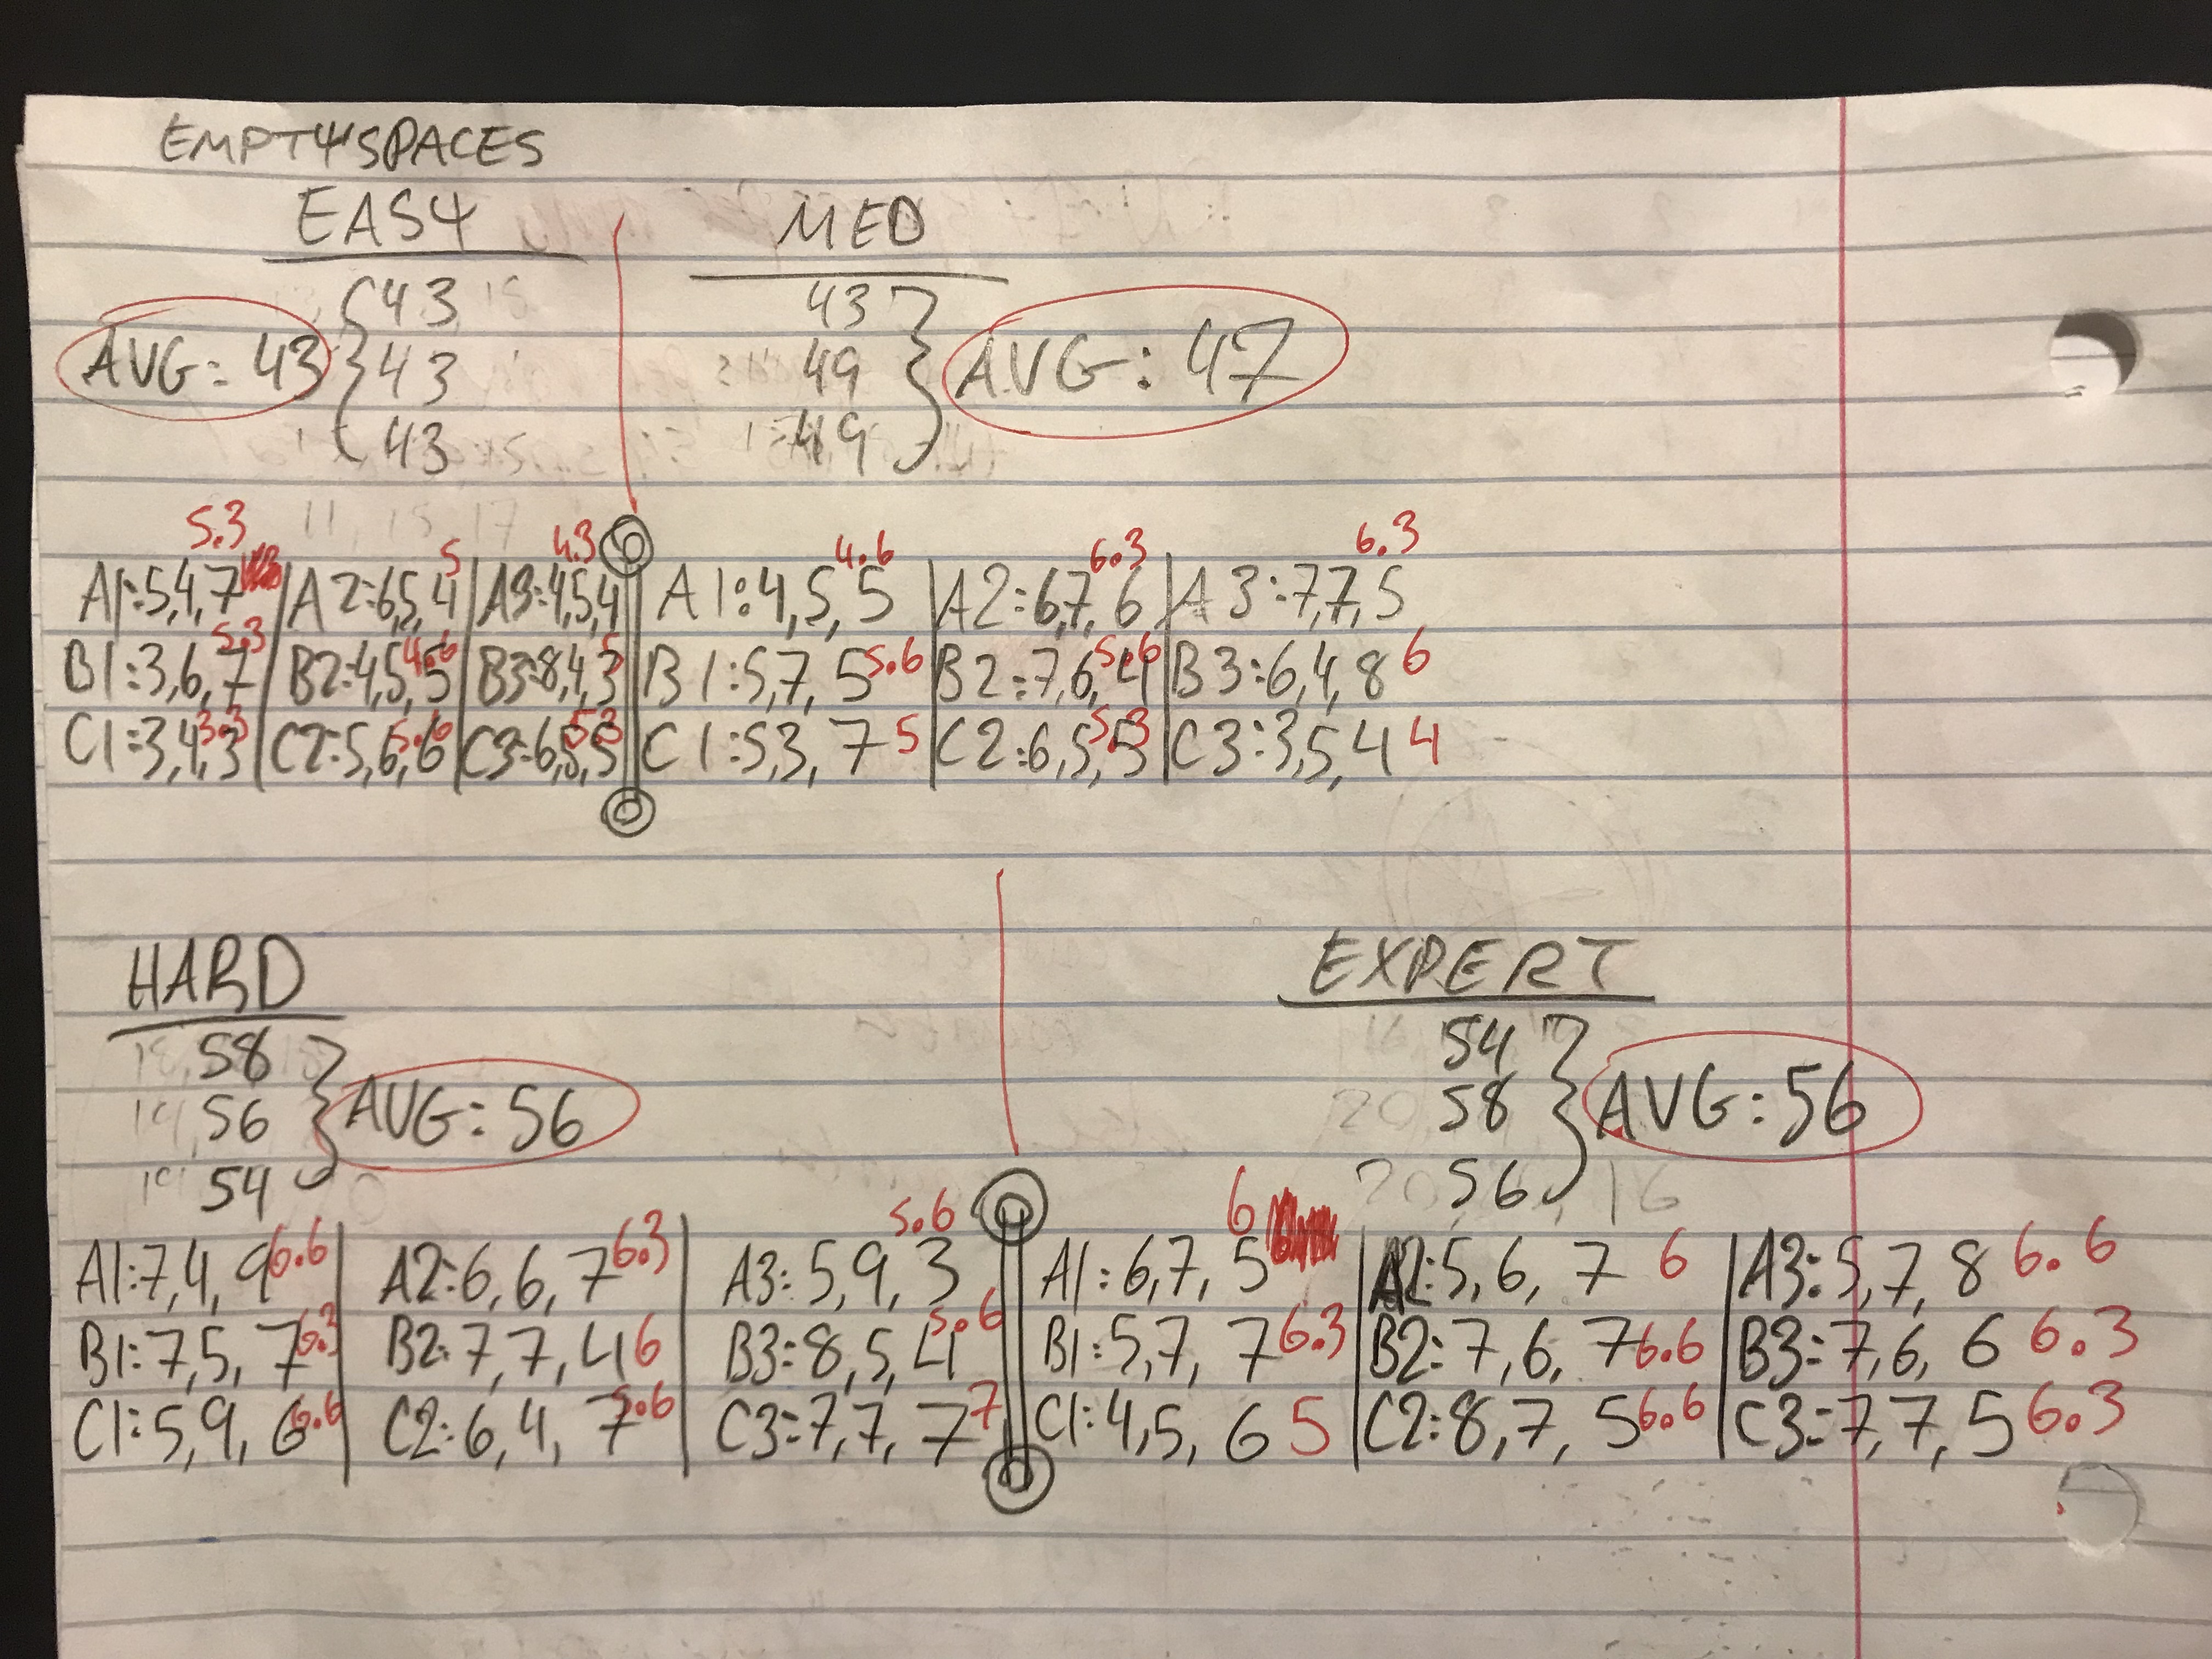 EMPTY SPACES
EASY MED
43 43
AVG: 43 43 49 AVG: 47
43 49
5.3 5 4.3 4.6 6.3 6.3
A1:5,4,7 A2:6,5,4 A3:4,5,4 A1:4,5,5 A2:6,7,6 A3:7,7,5
B1:3,6,7 5.3 B2:4,5,5 4.6 B3:8,4,3 5 B1:5,7,5 5.6 B2:7,6,4 5.6 B3:6,4,8 6
C1:3,4,3 3.3 C2:5,6,6 5.6 C3:6,5,5 5.3 C1:5,3,7 5 C2:6,5,5 5.3 C3:3,5,4 4
HARD EXPERT
58 54
56 AVG: 56 58 AVG: 56
54 56
5.6 6
A1:7,4,9 6.6 A2:6,6,7 6.3 A3:5,9,3 A1:6,7,5 A2:5,6,7 6 A3:5,7,8 6.6
B1:7,5,7 6.3 B2:7,7,4 6 B3:8,5,4 5.6 B1:5,7,7 6.3 B2:7,6,7 6.6 B3:7,6,6 6.3
C1:5,9,6 6.6 C2:6,4,7 5.6 C3:7,7,7 7 C1:4,5,6 5 C2:8,7,5 6.6 C3:7,7,5 6.3